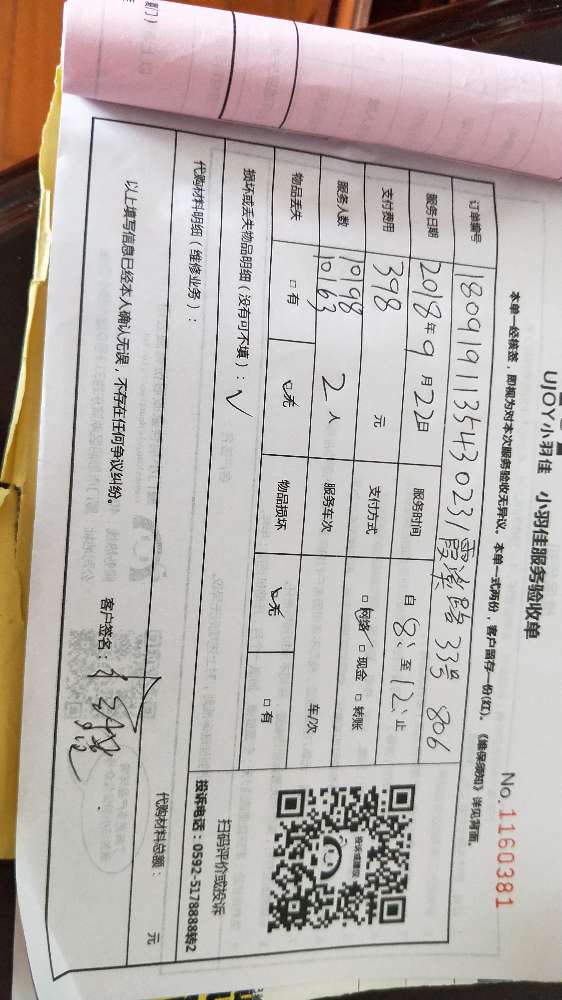 UJOY小羽佳 小羽佳服务验收单
No. 1160381
本单一经核签，即视为对本次服务验收无异议。本单一式两份，客户留存一份(红)。《维保须知》详见背面。
订单编号 180919113543023 / 霞溪路 33号 806
服务日期 2018年9月22日 服务时间 自 8: 至 12: 止
支付费用 398 元 支付方式 □网络 □现金 □转账
服务人数 1098 10163 2人 服务车次 车/次
物品丢失 □有 □无 物品损坏 □无 □有
损坏或丢失物品明细（没有可不填）：√
投诉或建议
扫码评价或投诉
投诉电话：0592-5178888转2
代购材料明细（维修业务）：
代购材料总额： 元
以上填写信息已经本人确认无误，不存在任何争议纠纷。
客户签名：